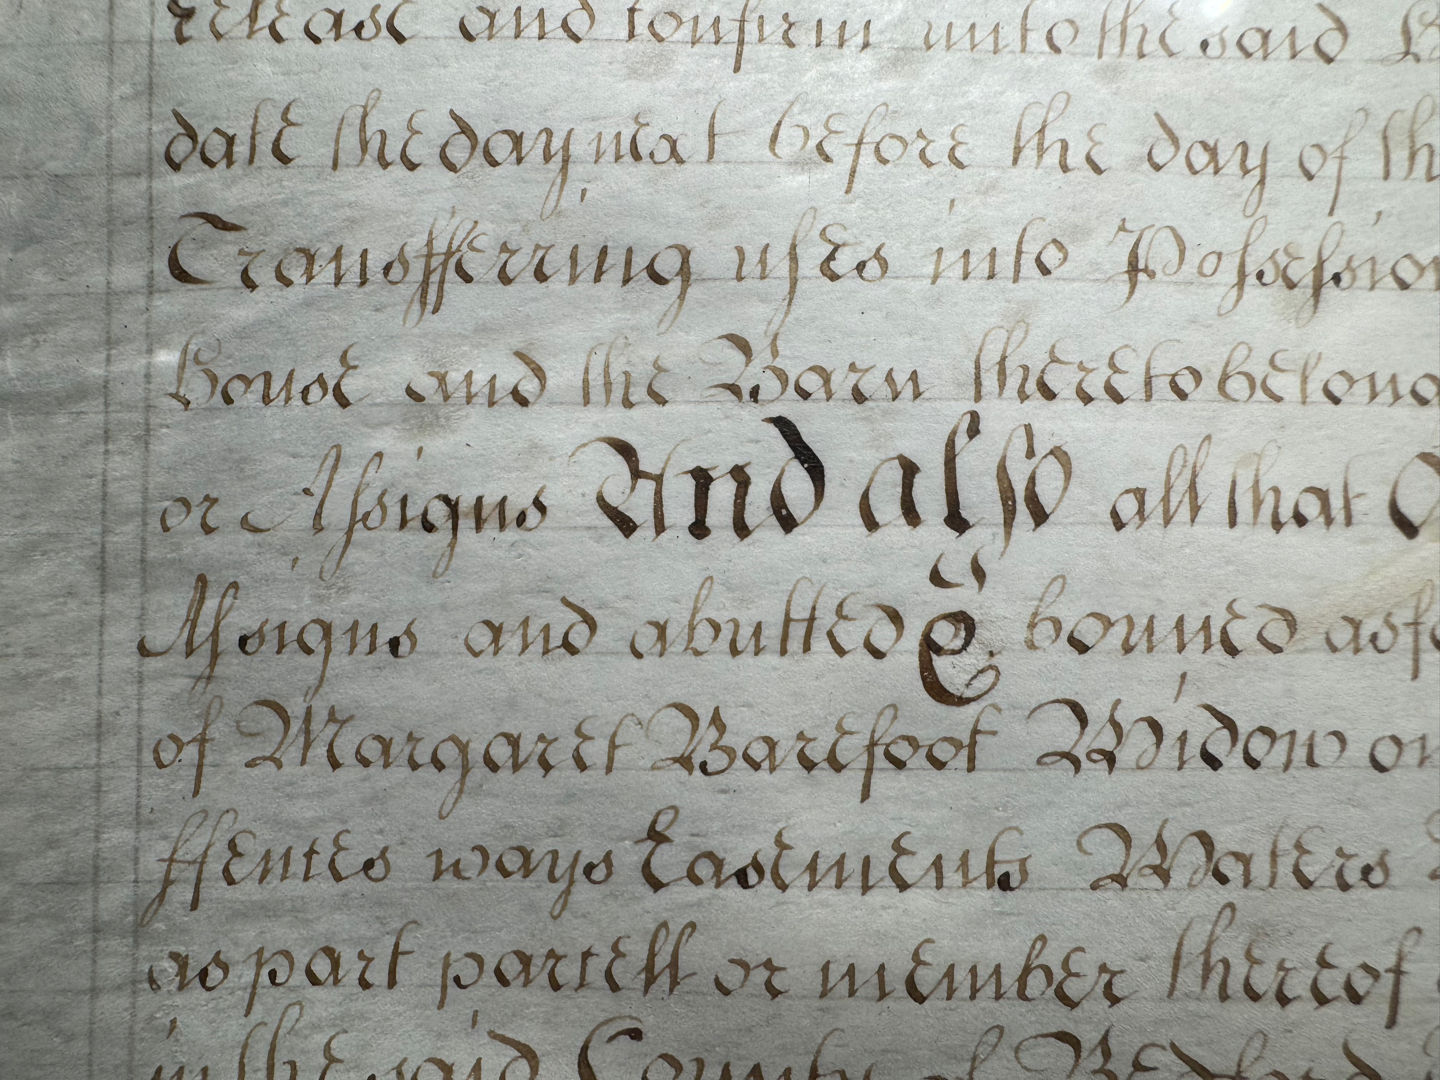 release and confirm unto the said
date the day next before the day of th
Transfferring uses into Possession
House and the Barn thereto belong
or Assigns And also all that O
Assigns and abutted & bounded as fo
of Margaret Barefoot Widow or
ffences ways Easements Waters
as part parcell or member thereof
in the said County of Bedford